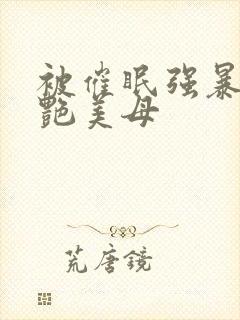 被催眠强暴
艳美母
荒唐镜